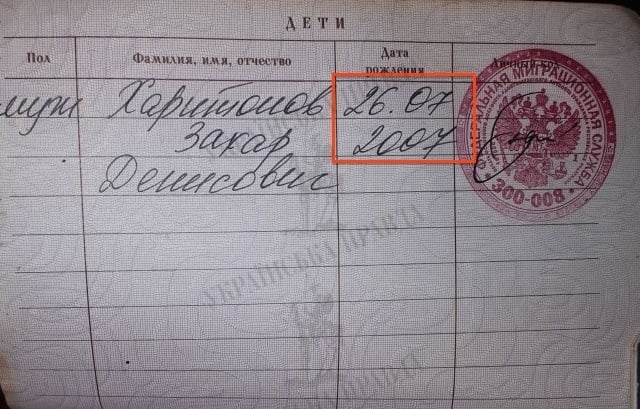 ДЕТИ
Пол Фамилия, имя, отчество Дата рождения Личный код
муж Харитонов 26.07
Захар 2007
Денисович
ФЕДЕРАЛЬНАЯ МИГРАЦИОННАЯ СЛУЖБА
300-008
УКРАЇНСЬКА ПРАВДА
УКРАЇНСЬКА ПРАВДА